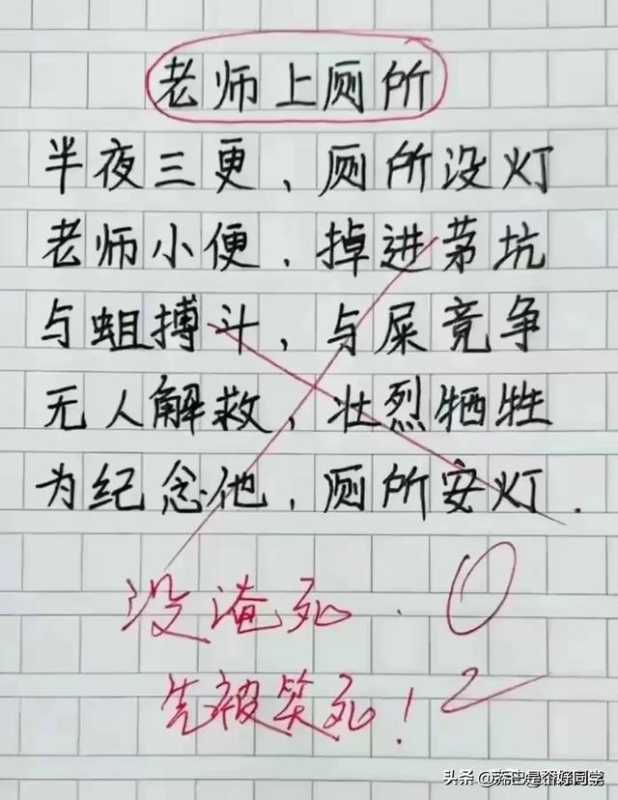 老师上厕所
半夜三更、厕所没灯
老师小便.掉进茅坑
与蛆搏斗,与屎竞争
无人解救,壮烈牺牲
为纪念他,厕所安灯.
没淹死.0
先被笑死!
头条 @荒巴是个好同学